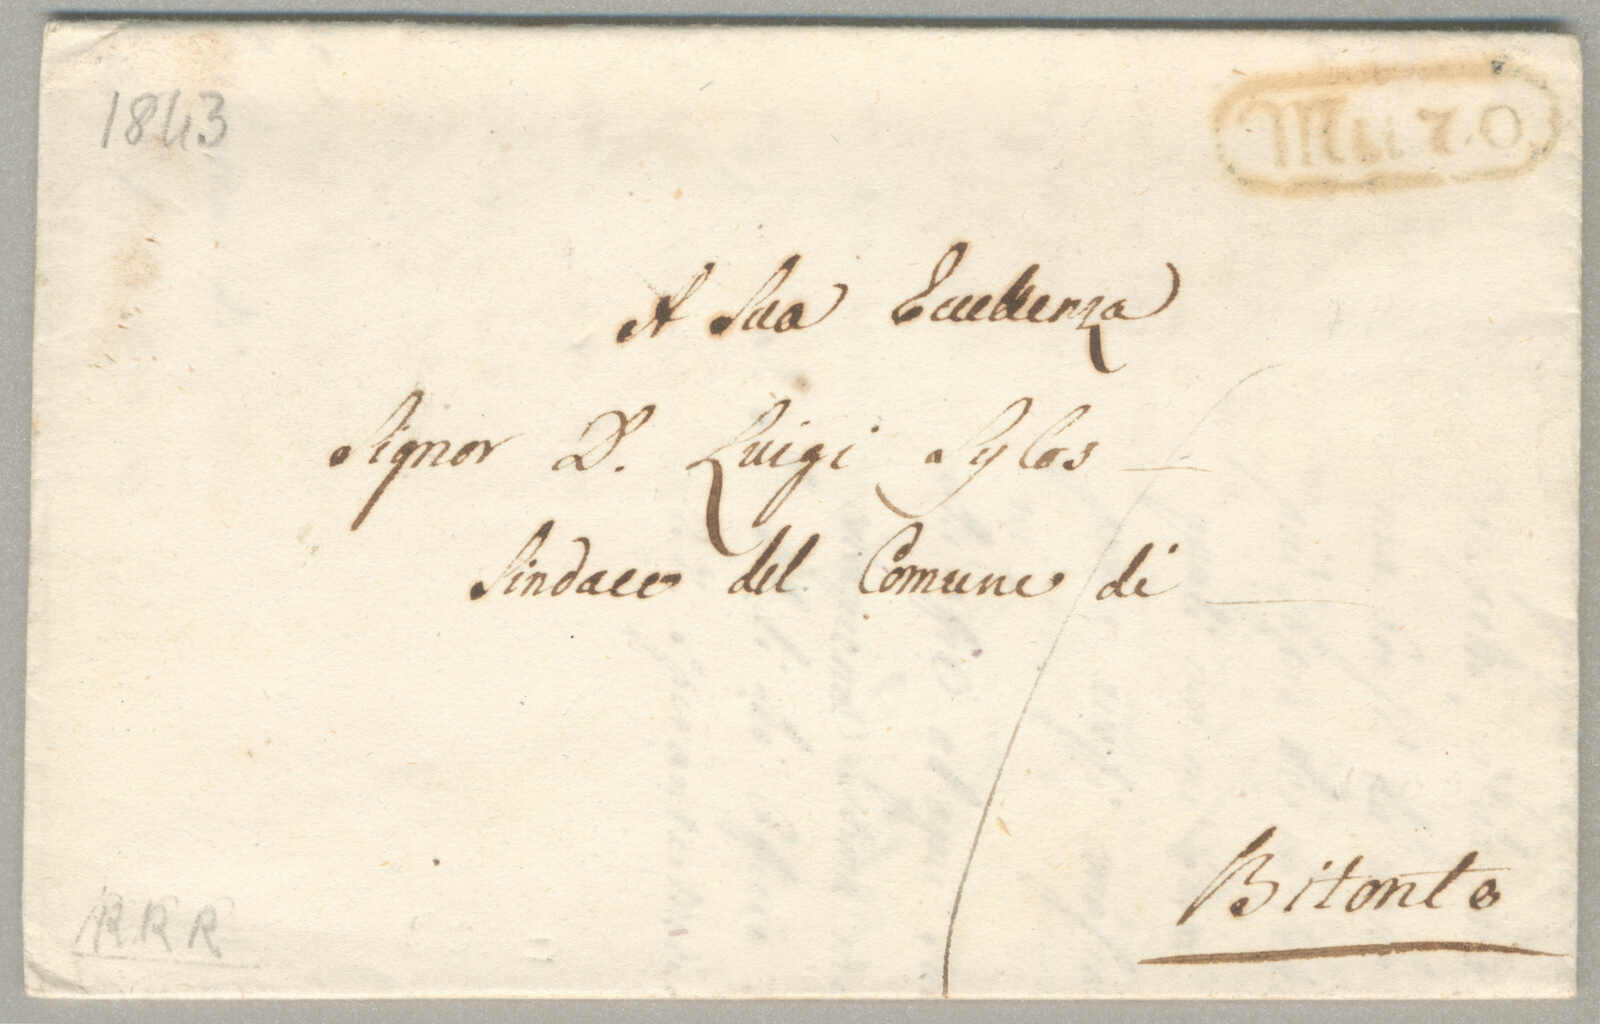 1843
Muro
A Sua Eccellenza
Signor D. Luigi Sylos
Sindaco del Comune di
Bitonto
RRR